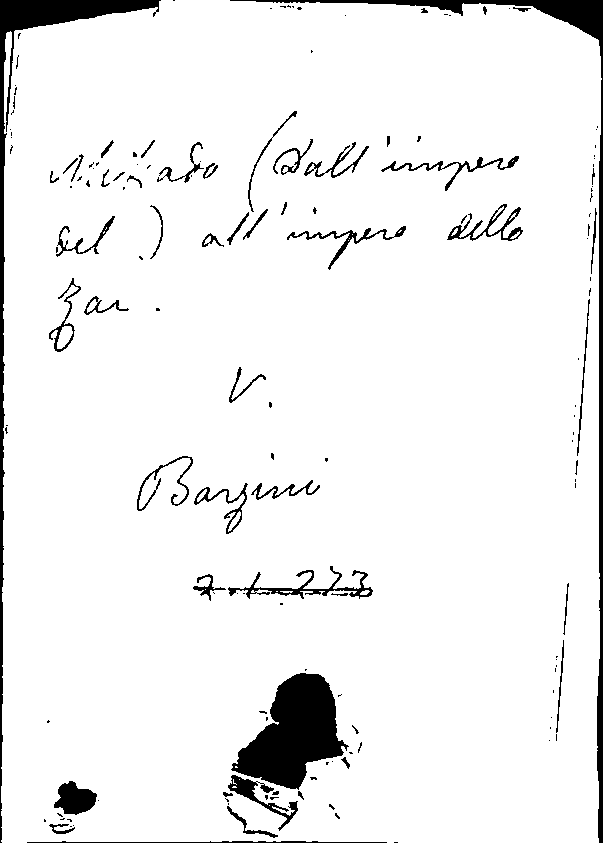 Mikado (Dall'impero
del.) all'impero dello
Zar.
V.
Barzini
2.1.273